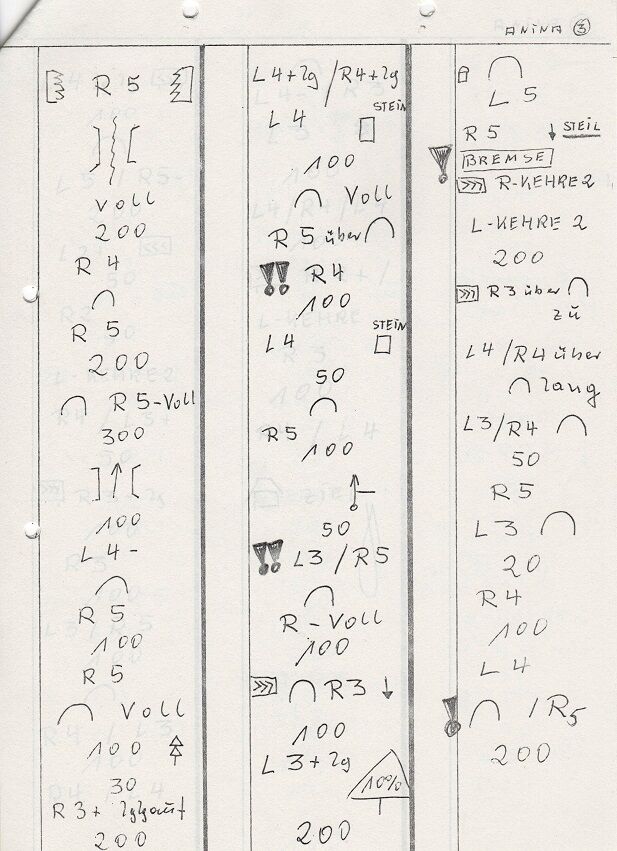 ANINA 3
R 5
] [
VOLL
200
R 4
R 5
200
R 5-VOLL
300
] ↑ [
100
L 4 -
R 5
100
R 5
VOLL
100
30
R 3 +
200
L 4+lg / R 4+lg
STEIN
L 4
100
VOLL
R 5 über
!! R 4
100
STEIN
L 4
50
R 5
100
50
!! L 3 / R 5
R - VOLL
100
>>> R 3 ↓
100
L 3 + lg
10%
200
L 5
R 5 ↓ STEIL
! BREMSE
>>> R-KEHRE 2
L-KEHRE 2
200
>>> R 3 über
zu
L 4 / R 4 über
lang
L 3 / R 4
50
R 5
L 3
20
R 4
100
L 4
! / R 5
200